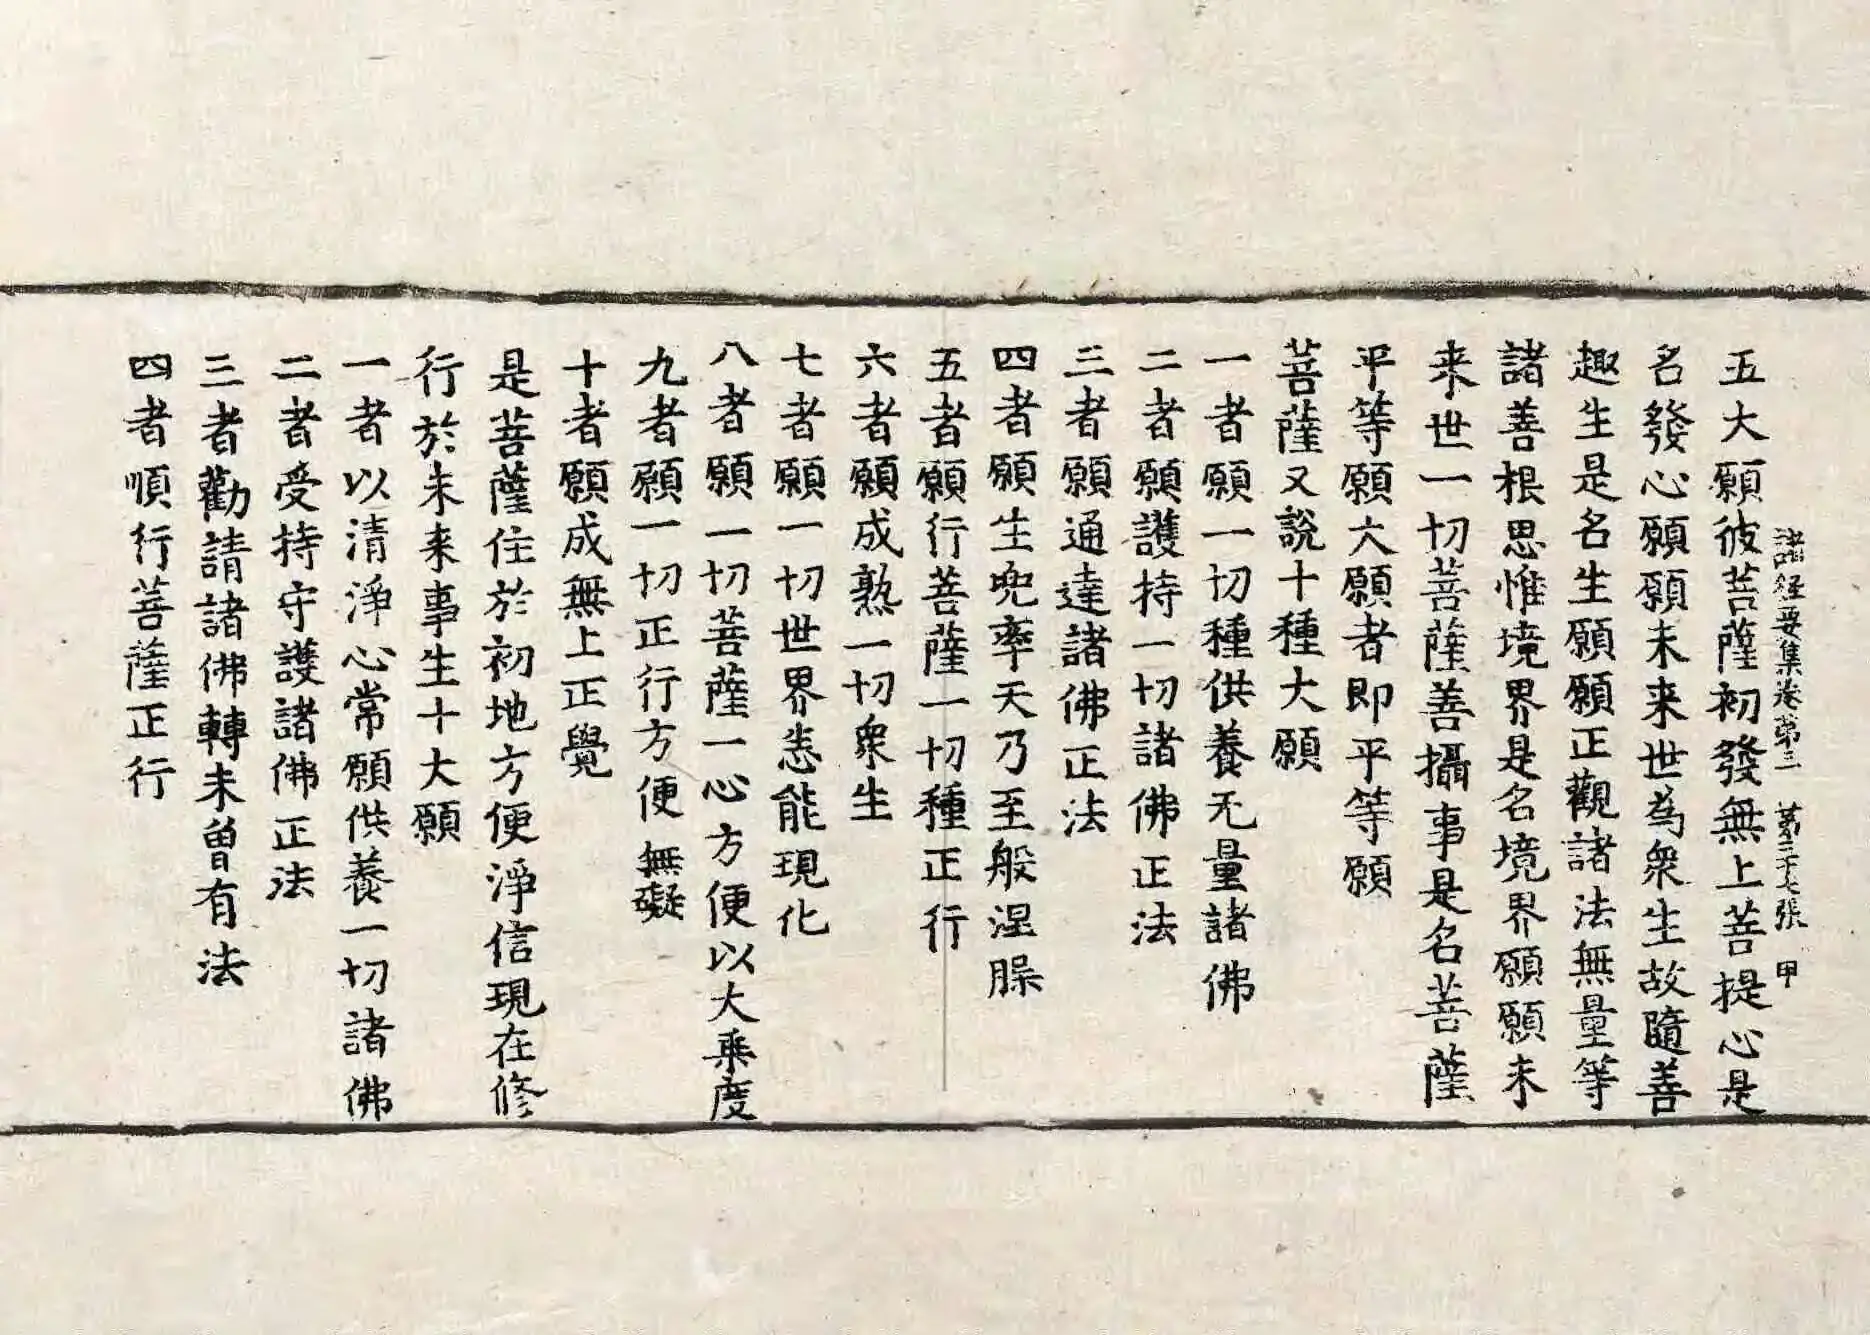 諸経要集卷第三 第二十七張 甲
五大願彼菩薩初發無上菩提心是
名發心願願未来世為衆生故隨善
趣生是名生願願正觀諸法無量等
諸善根思惟境界是名境界願願未
来世一切菩薩善攝事是名菩薩
平等願大願者即平等願
菩薩又說十種大願
一者願一切種供養无量諸佛
二者願護持一切諸佛正法
三者願通達諸佛正法
四者願生兜率天乃至般涅槃
五者願行菩薩一切種正行
六者願成熟一切衆生
七者願一切世界悉能現化
八者願一切菩薩一心方便以大乘度
九者願一切正行方便無礙
十者願成無上正覺
是菩薩住於初地方便淨信現在修
行於未来事生十大願
一者以清淨心常願供養一切諸佛
二者受持守護諸佛正法
三者勸請諸佛轉未曽有法
四者順行菩薩正行